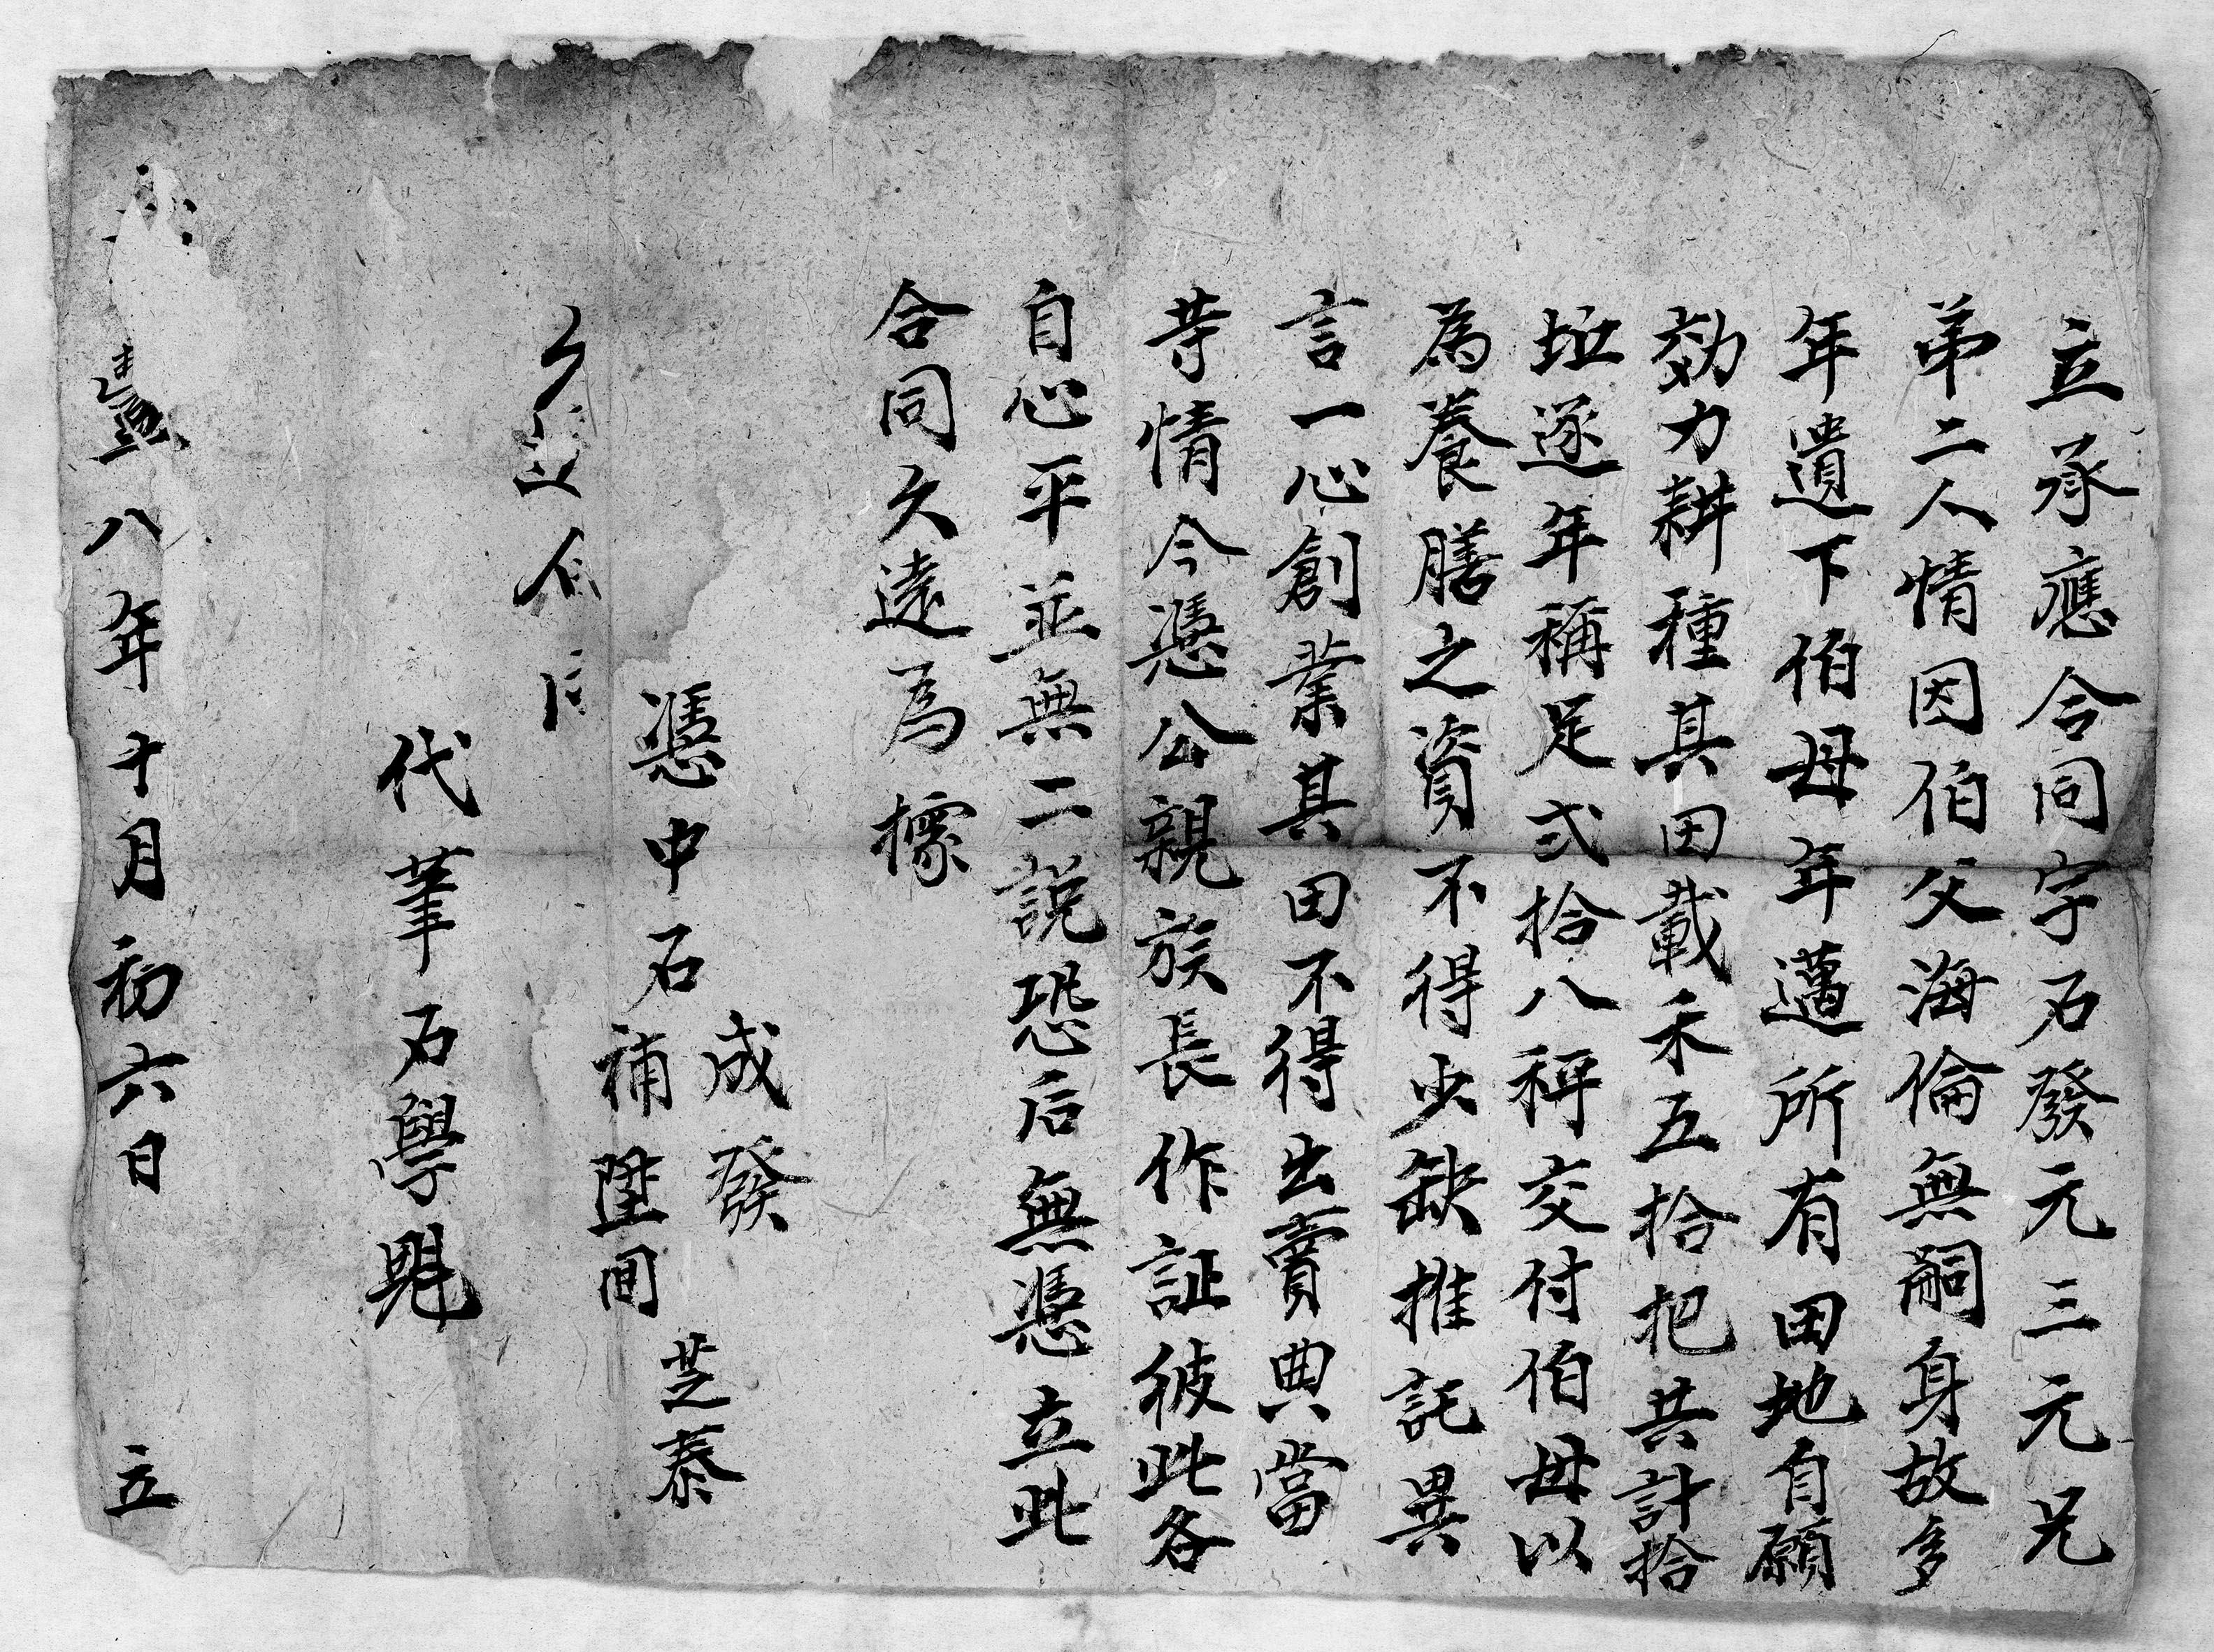 立承應合同字石發元三元兄
弟二人情因伯父海倫無嗣身故多
年遺下伯母年邁所有田地自願
効力耕種其田載禾五拾把共計拾
坵遞年稱足弍拾八秤交付伯母以
為養膳之資不得少缺推託異
言一心創業其田不得出賣典當
苛情今憑公親族長作証彼此各
自心平並無二説恐后無憑立此
合同久遠為據
成發
憑中石 芝泰
補陞間
代筆石學
八年十月初六日 立